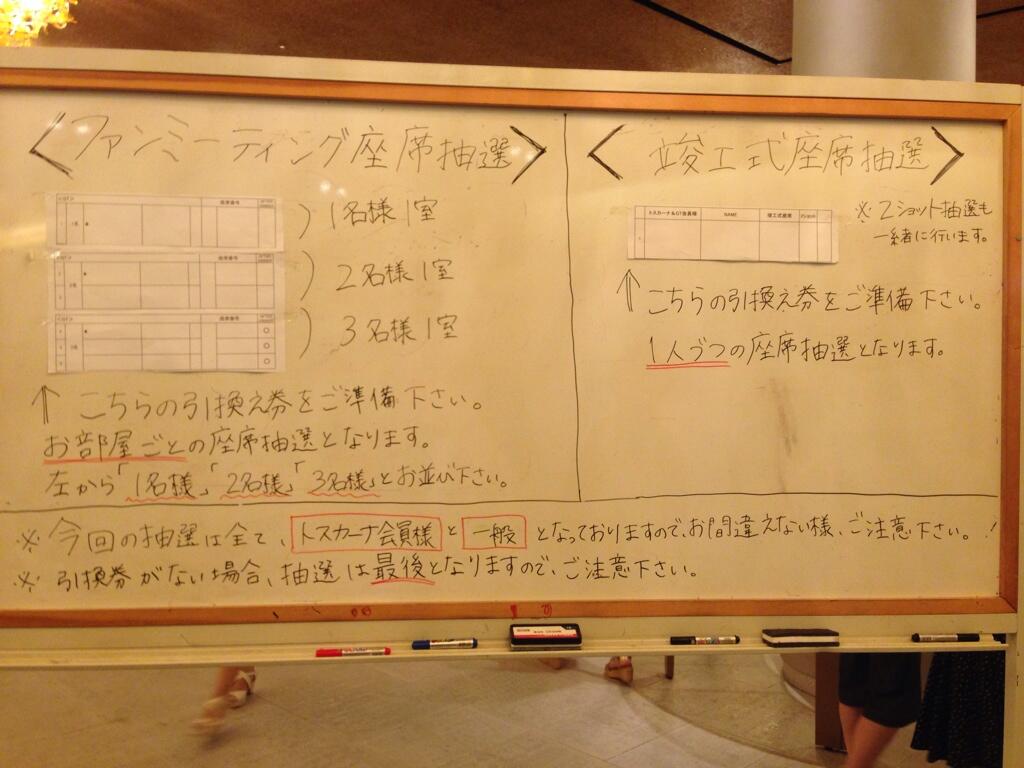 〈ファンミーティング座席抽選〉
座席番号
)1名様1室
1名
座席番号
)2名様1室
2名
座席番号
)3名様1室
3名
⇑ こちらの引換え券をご準備下さい。
お部屋ごとの座席抽選となります。
左から「1名様」「2名様」「3名様」とお並び下さい。
〈竣工式座席抽選〉
トスカーナ&GT会員様 NAME 竣工式座席 2ショット
※2ショット抽選も
一緒に行います。
⇑ こちらの引換え券をご準備下さい。
1人づつの座席抽選となります。
※今回の抽選は全て、トスカーナ会員様と一般となっておりますので、お間違えない様、ご注意下さい。!
※引換券がない場合、抽選は最後となりますので、ご注意下さい。